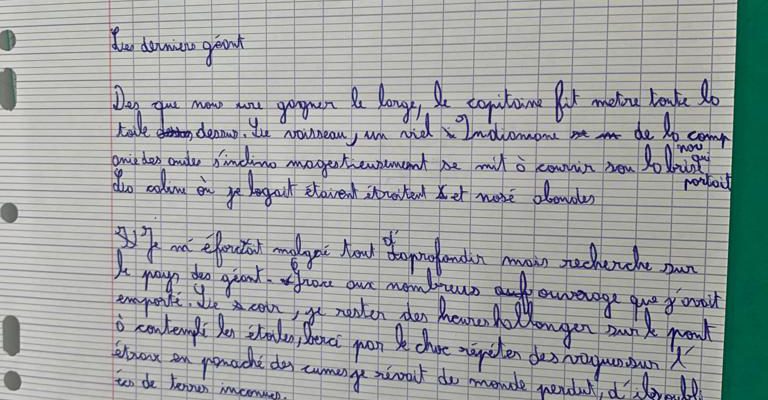 Les derniers géant
Des que nous ure gagner le large, le capitaine fit metre toute la
toile dessus. Le vaisseau, un viel Indiamane de la comp
anie des andes s'inclina magestieusement se mit à courrir sou la brise
nou qui portait
Les cabine ou je logait étaient étroitent et nosé abondes
Je m'éforcait malgré tout d'aprofondir mais recherche sur
le pays des géant. Grace aux nombreus ouvrage que j'avait
emporté. Le soir, je rester des heures allonger sur le pont
à contemplé les étoiles, berci par le choc répéter des vagues sur l'
étrave en panaché des cumes je révait de monde perdut, d'
ées de terres inconues.